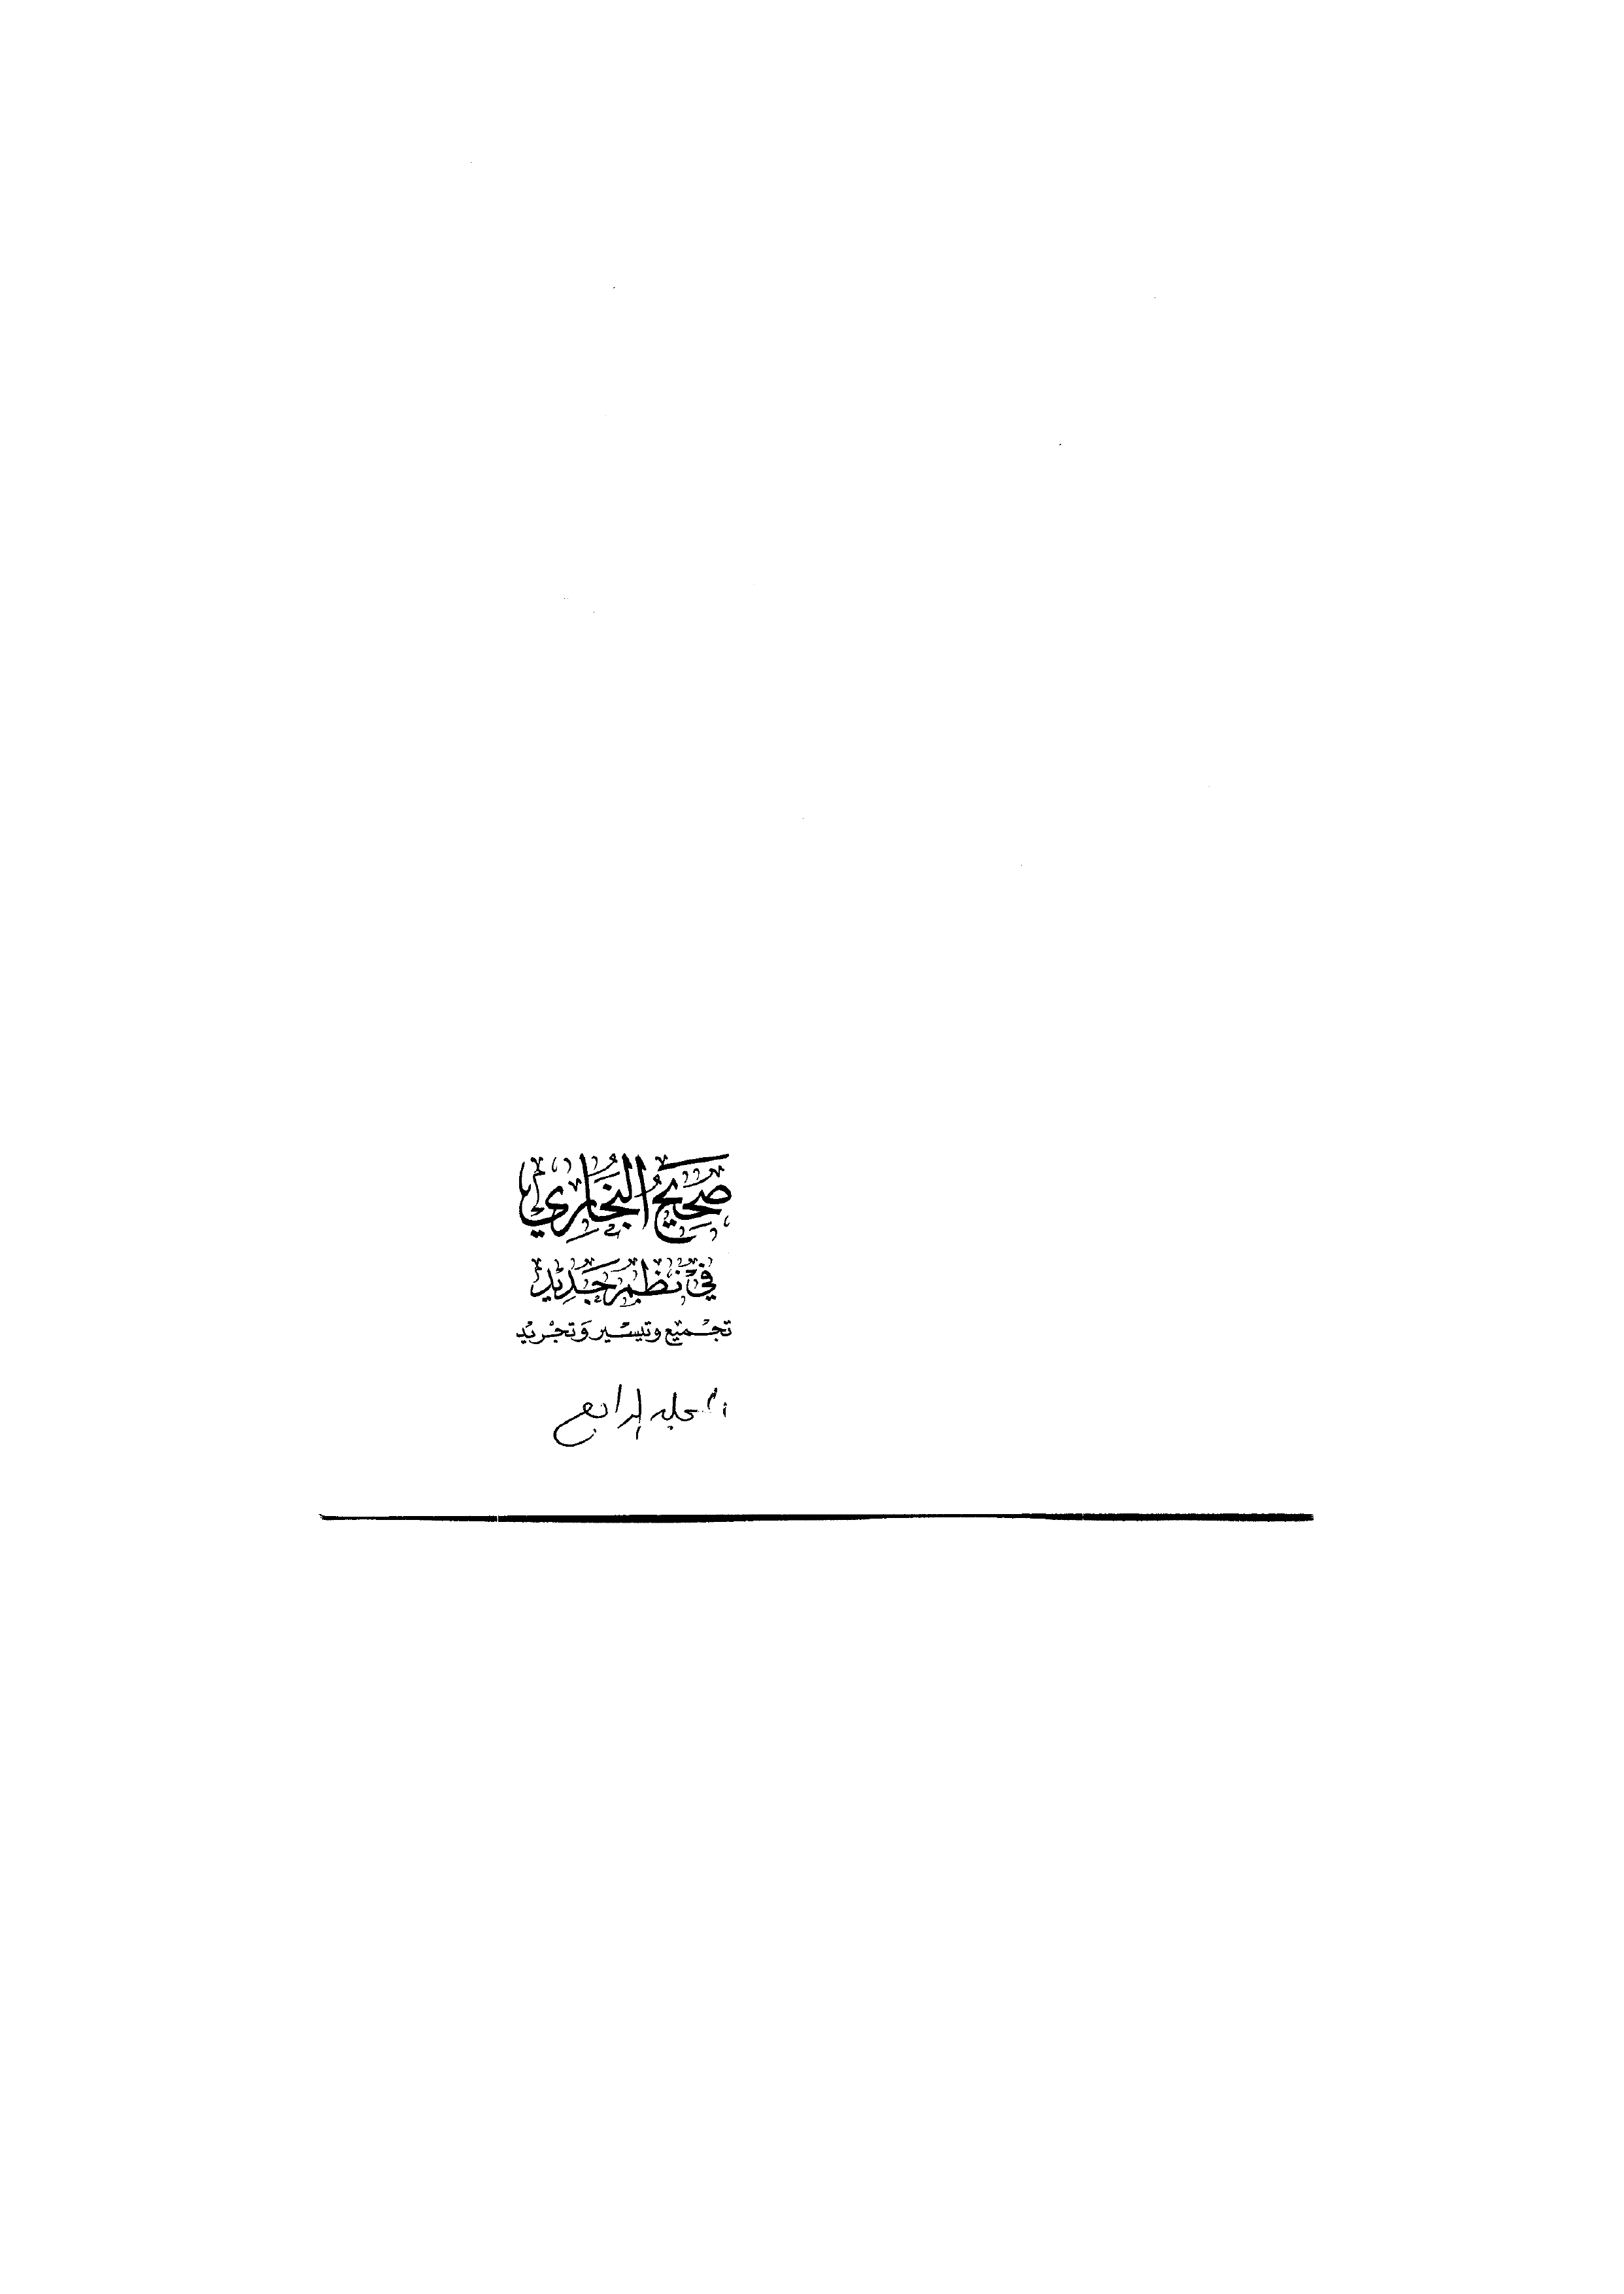 صَحِيحُ البُخَارِي
في نظم جَدِيد
تجميع وتيسير وَتجريد
المجلد الرابع